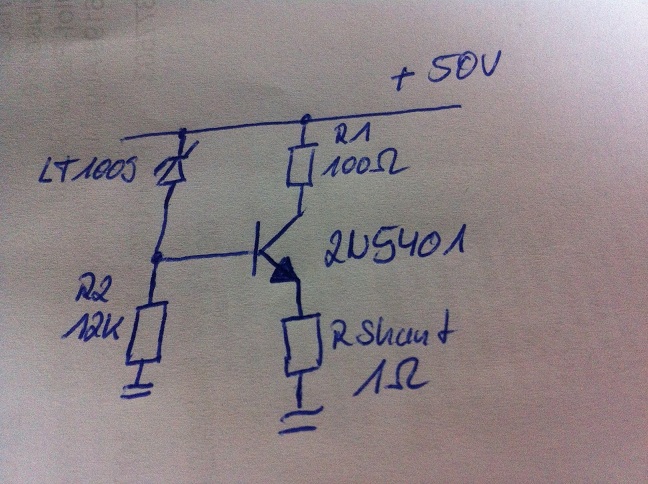 + 50V
R1
100Ω
LT1009
2N5401
R2
12K
RShunt
1Ω